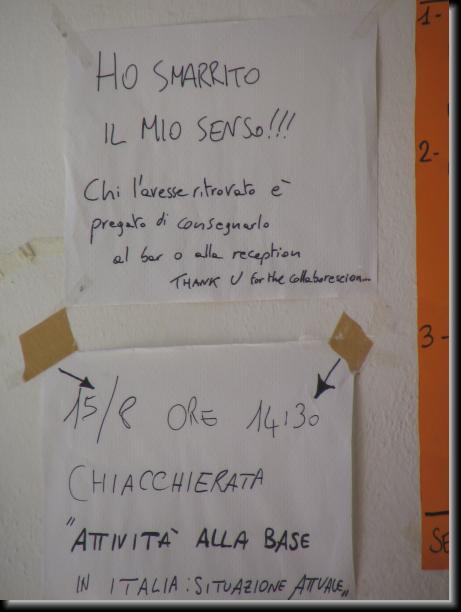 HO SMARRITO
IL MIO SENSO!!!
Chi l'avesse ritrovato è
pregato di consegnarlo
al bar o alla reception
THANK U for the collaborescion...
15/8 ORE 14:30
CHIACCHIERATA
"ATTIVITÀ ALLA BASE
IN ITALIA: SITUAZIONE ATTUALE"
1-
2-
3-
SE